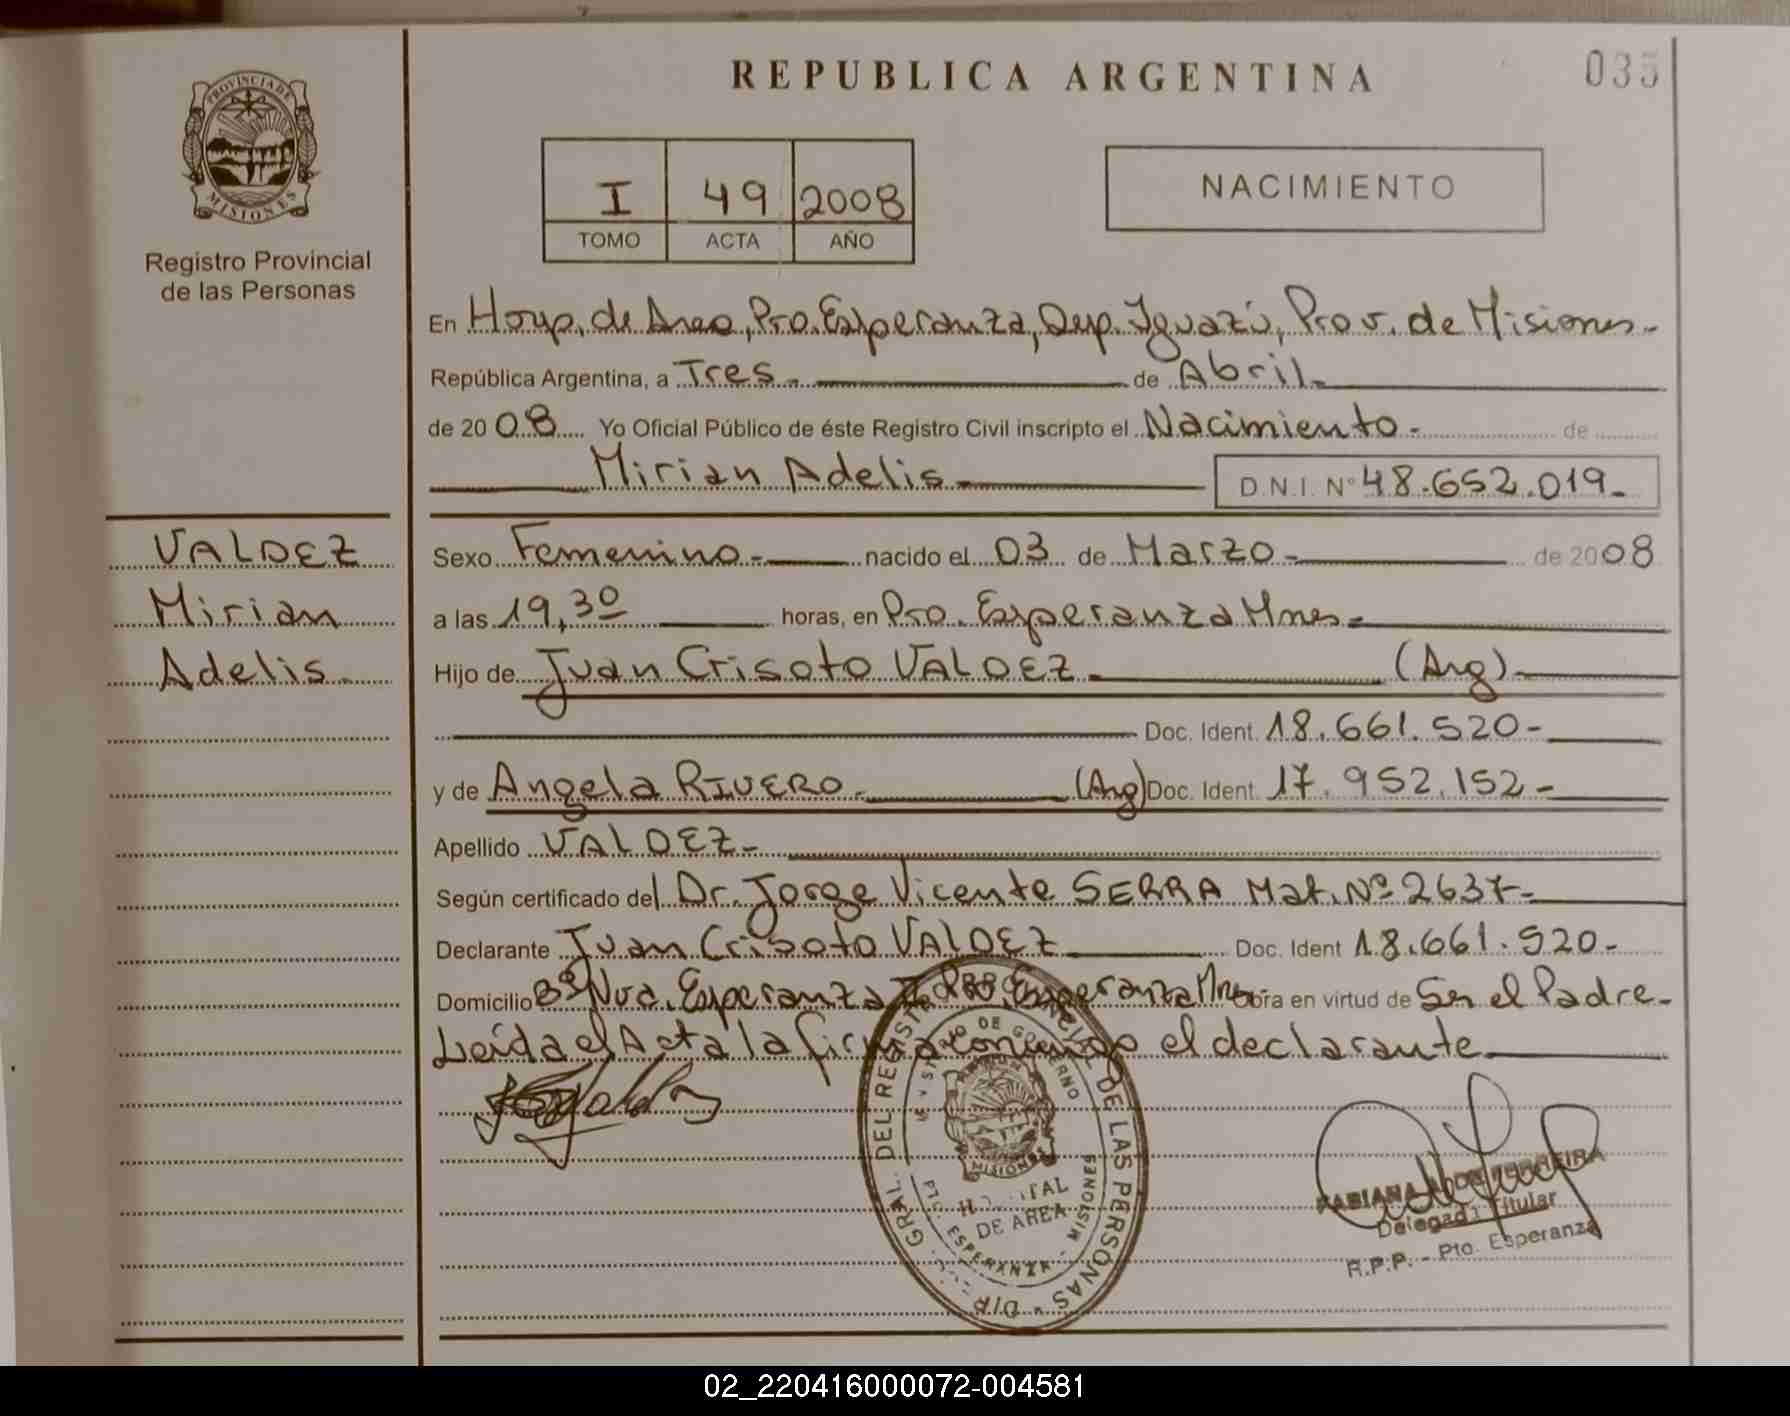 REPUBLICA ARGENTINA
035
PROVINCIA DE
MISIONES
Registro Provincial
de las Personas
I 49 2008
TOMO ACTA AÑO
NACIMIENTO
En Hosp. de Area, Pto. Esperanza, Dep. Iguazú, Prov. de Misiones.-
República Argentina, a Tres.- de Abril.-
de 2008 Yo Oficial Público de éste Registro Civil inscripto el Nacimiento.- de
Mirian Adelis.- D.N.I. Nº 48.652.019.-
VALDEZ
Mirian
Adelis.
Sexo Femenino.- nacido el 03 de Marzo.- de 2008
a las 19,30 horas, en Pto. Esperanza Mnes.-
Hijo de Juan Crisoto VALDEZ.- (Arg).-
Doc. Ident. 18.661.520.-
y de Angela RIVERO.- (Arg) Doc. Ident. 17.952.152.-
Apellido VALDEZ.-
Según certificado del Dr. Jorge Vicente SERRA Mat. Nº 2637.-
Declarante Juan Crisoto VALDEZ Doc. Ident 18.661.520.-
Domicilio Bº Nva. Esperanza Pto. Esperanza Mnes.- Obra en virtud de Ser el Padre.-
Leída el Acta la firma conmigo el declarante.-
DIR. GRAL. DEL REGISTRO PROVINCIAL DE LAS PERSONAS
MINISTERIO DE GOBIERNO
MISIONES
HOSPITAL
DE AREA
PTO. ESPERANZA - MISIONES
FABIANA DE FERREIRA
Delegada Titular
R.P.P. - Pto. Esperanza
02_220416000072-004581